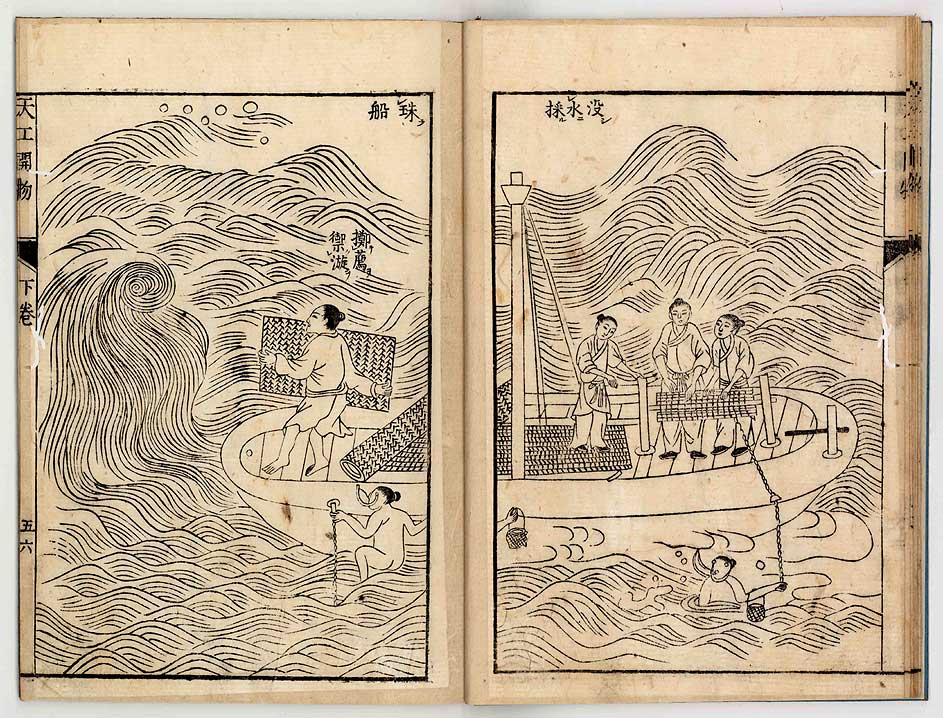 没水採
珠船
擲薦
禦漩
天工開物
下卷
五六